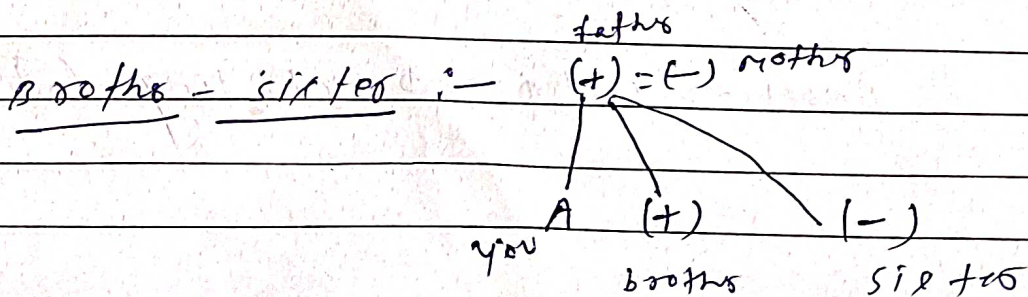 father
Brother - sister :- (+) = (-) mother
A (+) (-)
you
brother sister